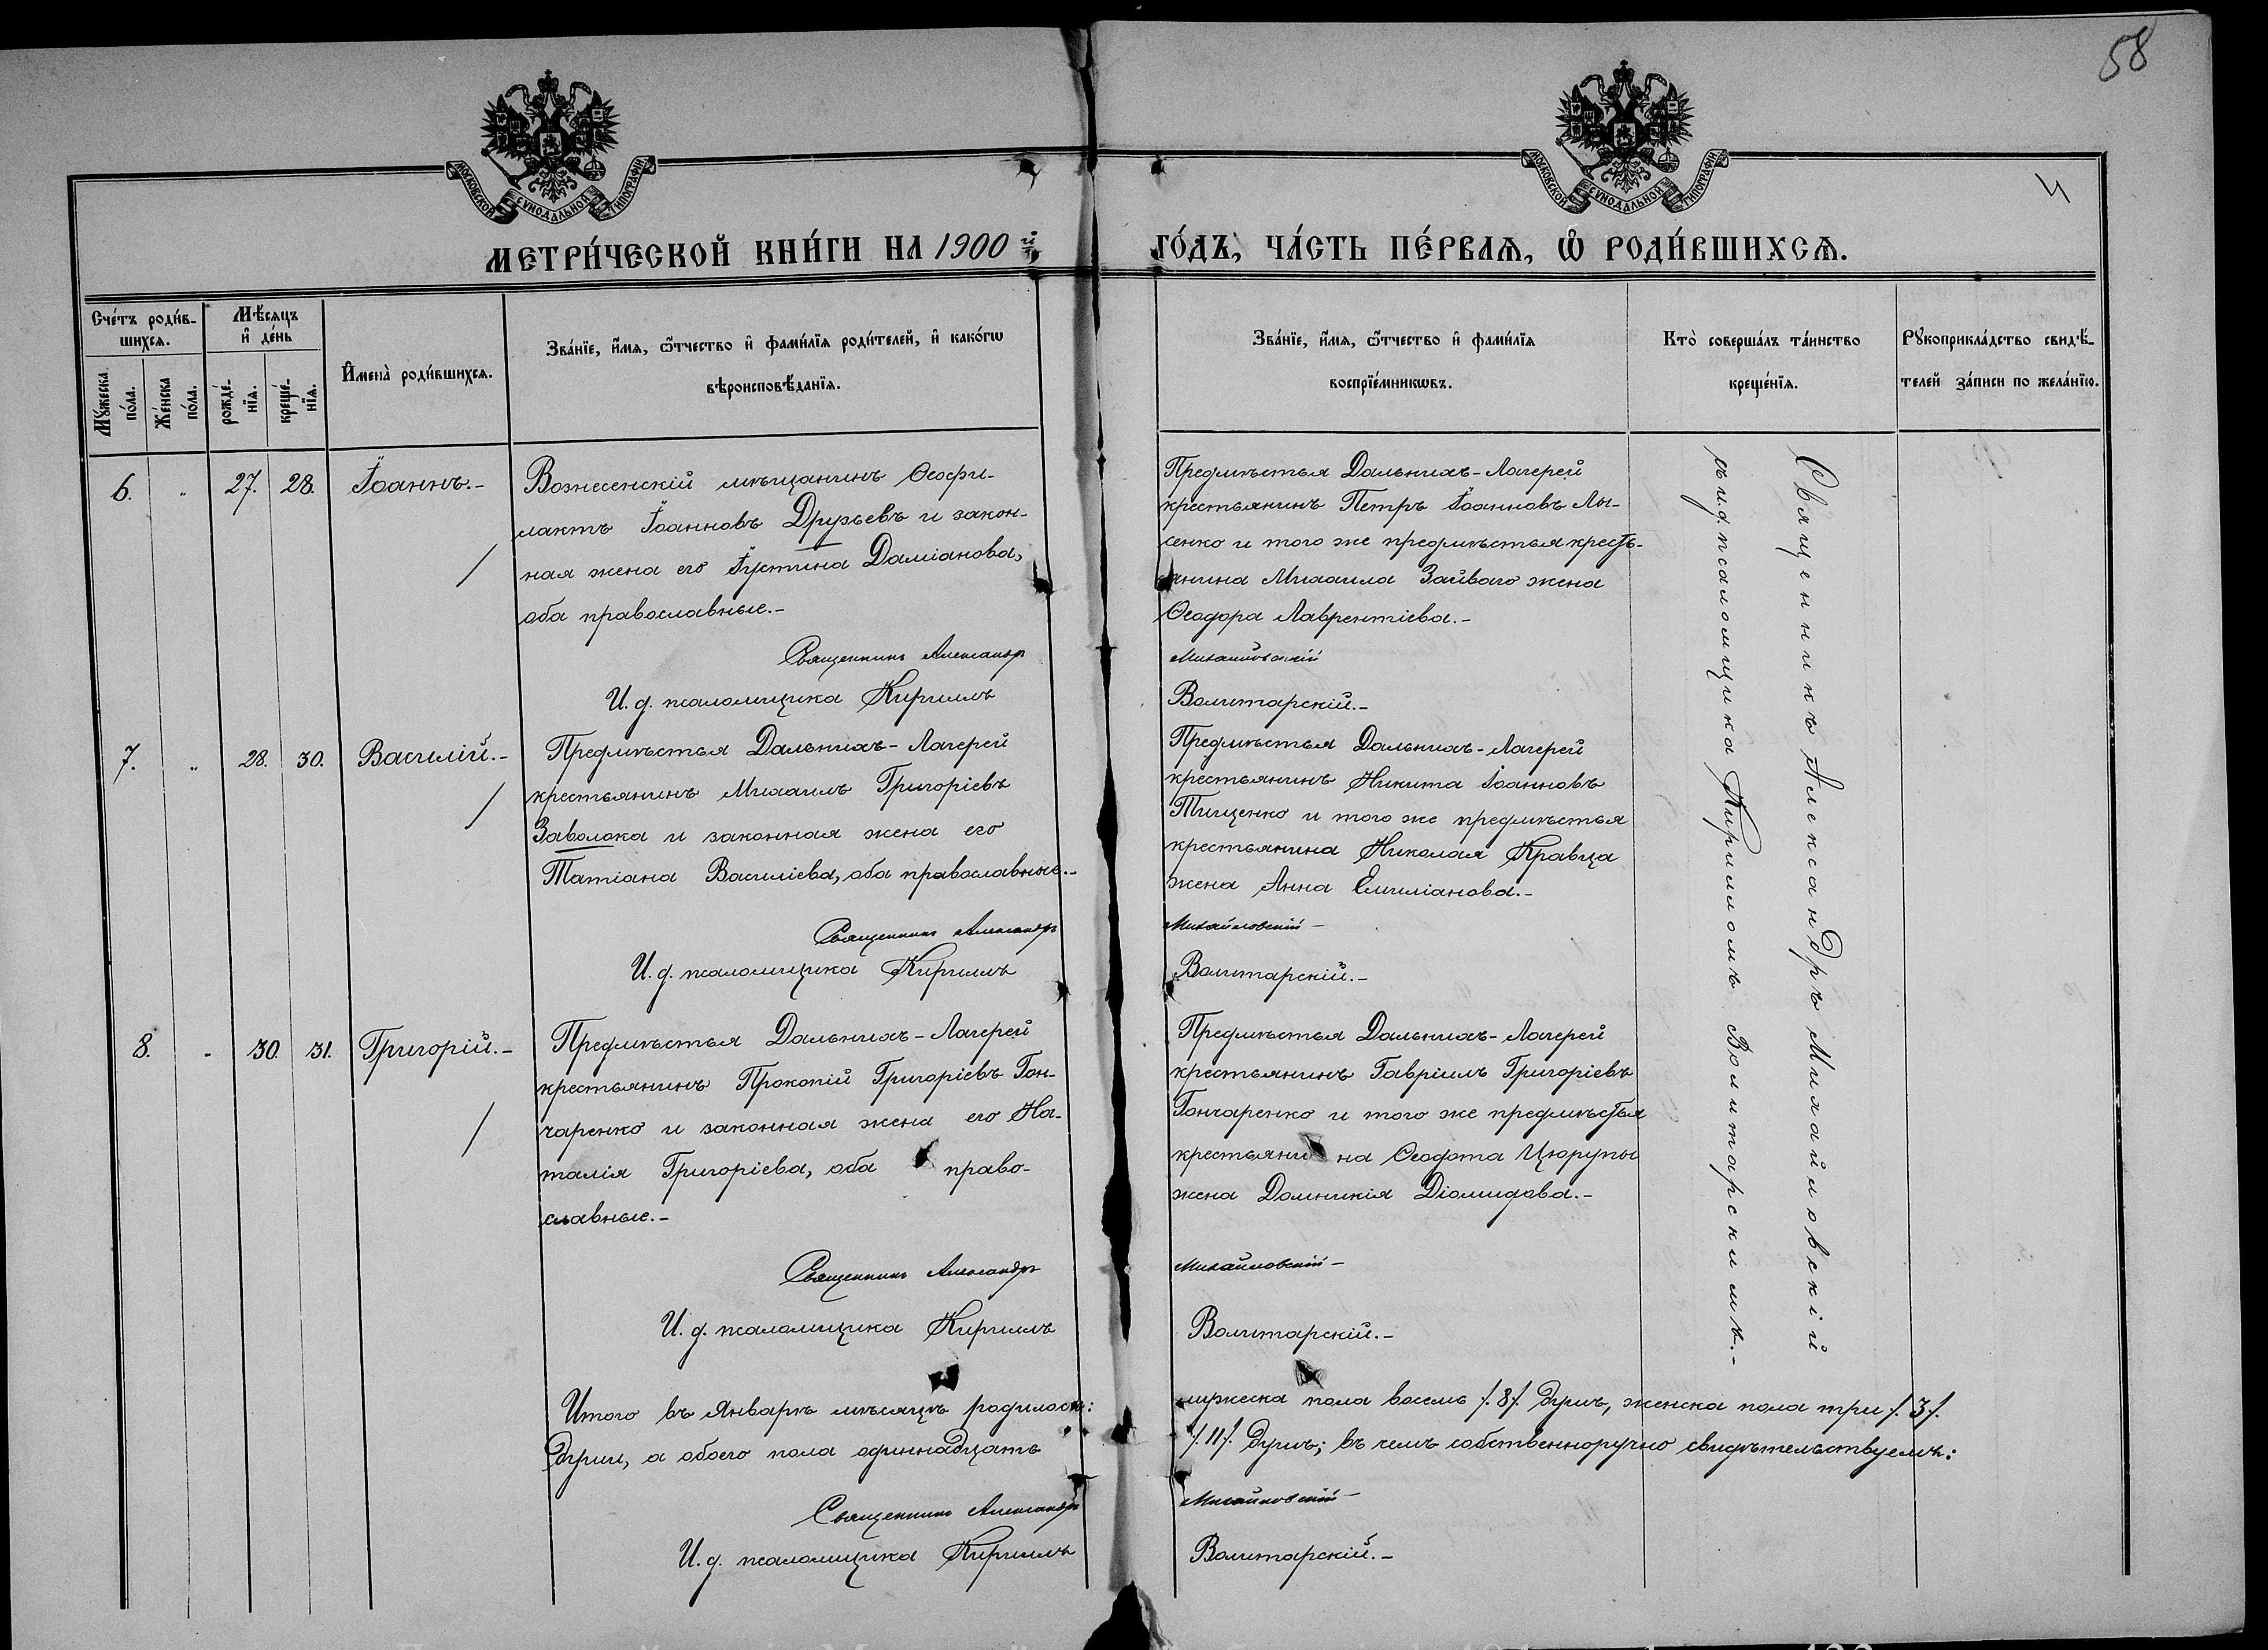 58
4
МОСКОВСКОЙ СУНОДАЛЬНОЙ ТИПОГРАФІИ
МОСКОВСКОЙ СУНОДАЛЬНОЙ ТИПОГРАФІИ
МЕТРИ́ЧЕСКОЙ КНИ́ГИ НА 1900 й
ГО́ДЪ, ЧА́СТЬ ПЕ́РВАѦ, Ѡ҆ РОДИ́ВШИХСѦ.
Сче́тъ роди́в-
шихсѧ.
Мѣ́сѧцъ
и҆ де́нь
Мꙋ́жеска
по́ла.
Же́нска
по́ла.
рожде́-
нїѧ.
креще́-
нїѧ.
И҆мена̀ роди́вшихсѧ.
Зва́нїе, и҆́мѧ, ѻ҆́тчество и҆ фами́лїѧ роди́телей, и҆ како́гѡ
вѣроисповѣ́данїѧ.
Зва́нїе, и҆́мѧ, ѻ҆́тчество и҆ фами́лїѧ
воспрїе́мникѡвъ.
Кто̀ соверша́лъ та́инство
креще́нїѧ.
Рꙋкоприкла́дство свидѣ́-
телей за́писи по жела́нїю.
6. " 27. 28. Іоаннъ.-
Вознесенскій мѣщанинъ Ѳеофи-
лактъ Іоанновъ Друзьевъ и закон-
ная жена его Іустина Даміанова,
оба православные.-
Священникъ Александръ
И. д. псаломщика Кириллъ
Предмѣстья Дальнихъ-Лагерей
крестьянинъ Петръ Іоанновъ Лы-
сенко и того же предмѣстья кресть-
янина Михаила Зайваго жена
Ѳеодора Лаврентіева.-
Михайловскій
Волитарскій.-
7. " 28. 30. Василій.-
Предмѣстья Дальнихъ-Лагерей
крестьянинъ Михаилъ Григоріевъ
Заволока и законная жена его
Татіана Василіева, оба православные.-
Священникъ Александръ
И. д. псаломщика Кириллъ
Предмѣстья Дальнихъ-Лагерей
крестьянинъ Никита Іоанновъ
Тищенко и того же предмѣстья
крестьянина Николая Кравца
жена Анна Емиліанова.-
Михайловскій-
Волитарскій.-
8. - 30. 31. Григорій.-
Предмѣстья Дальнихъ-Лагерей
крестьянинъ Прокопій Григоріевъ Гон-
чаренко и законная жена его На-
талія Григоріева, оба право-
славные.-
Священникъ Александръ
И. д. псаломщика Кириллъ
Предмѣстья Дальнихъ-Лагерей
крестьянинъ Гавріилъ Григоріевъ
Гончаренко и того же предмѣстья
крестьянина Ѳеодота Цюрупы
жена Домникія Діомидова.-
Михайловскій-
Волитарскій.-
Священникъ Александръ Михайловскій
съ и. д. псаломщика Кирилломъ Волитарскимъ.-
Итого въ Январѣ мѣсяцѣ родилось:
мужеска пола восемь /.8/. душъ, женска пола три /.3/.
души, а обоего пола одиннадцать
/.11/. душъ; въ чемъ собственноручно свидѣтельствуемъ:
Священникъ Александръ
Михайловскій-
И. д. псаломщика Кириллъ
Волитарскій.-